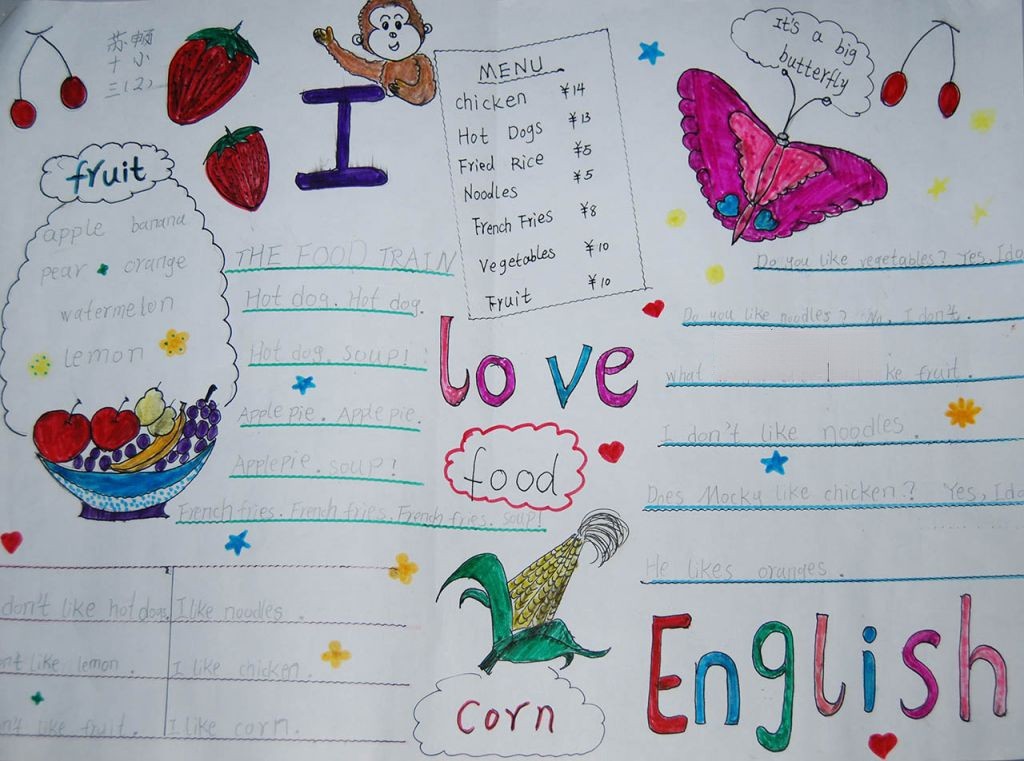 苏顿
十小
三(2)
I
MENU
chicken ¥14
Hot Dogs ¥13
Fried Rice ¥5
Noodles ¥5
French Fries ¥8
Vegetables ¥10
Fruit ¥10
It's a big
butterfly
fruit
apple banana
pear orange
watermelon
lemon
THE FOOD TRAIN
Hot dog. Hot dog.
Hot dog. soup!
Apple pie. Apple pie.
Applepie. soup!
French fries. French fries. French fries. soup!
love
food
Do you like vegetables? Yes, I do
Do you like noodles? No, I don't.
what ke fruit.
I don't like noodles.
Does Mocky like chicken? Yes, I do
He likes oranges.
don't like hot dogs. I like noodles.
n't like lemon. I like chicken.
n't like fruit. I like corn.
corn
English